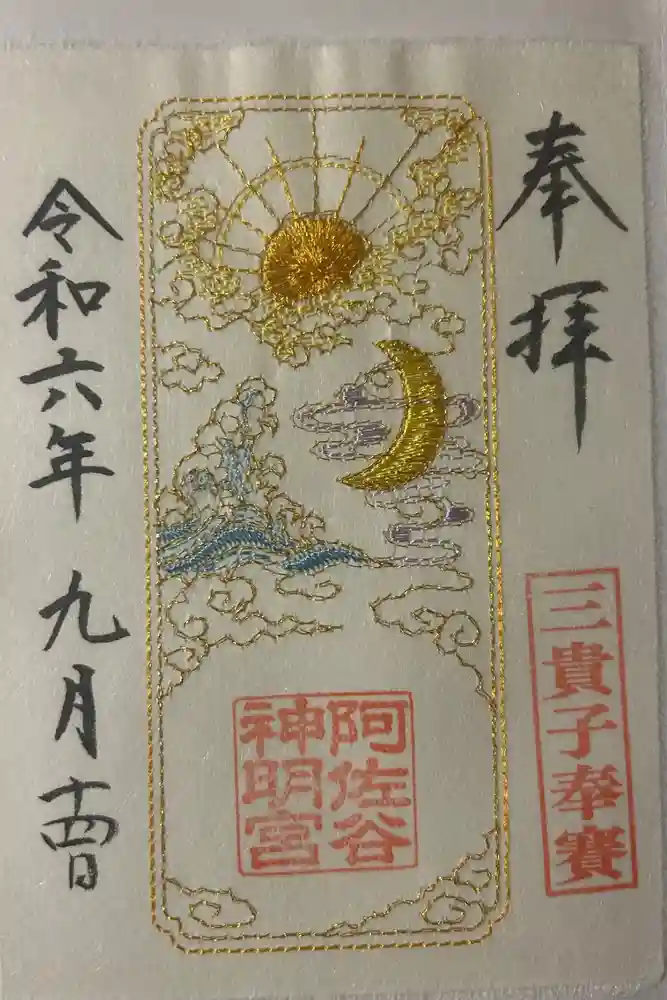 奉拝
三貴子奉賽
阿佐谷
神明宮
令和六年九月十四日